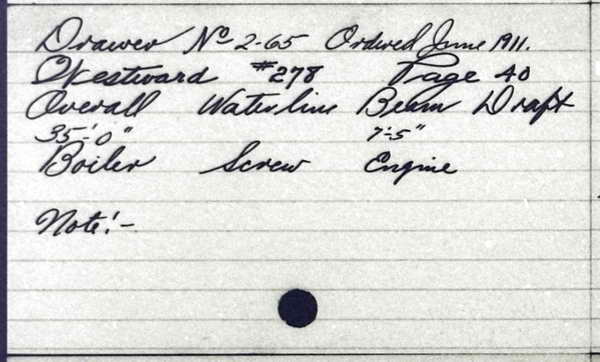 Drawer No 2-65 Ordered June 1911.
Westward #278 Page 40
Overall Waterline Beam Draft
35'-0" 7'-5"
Boiler Screw Engine
Note:-